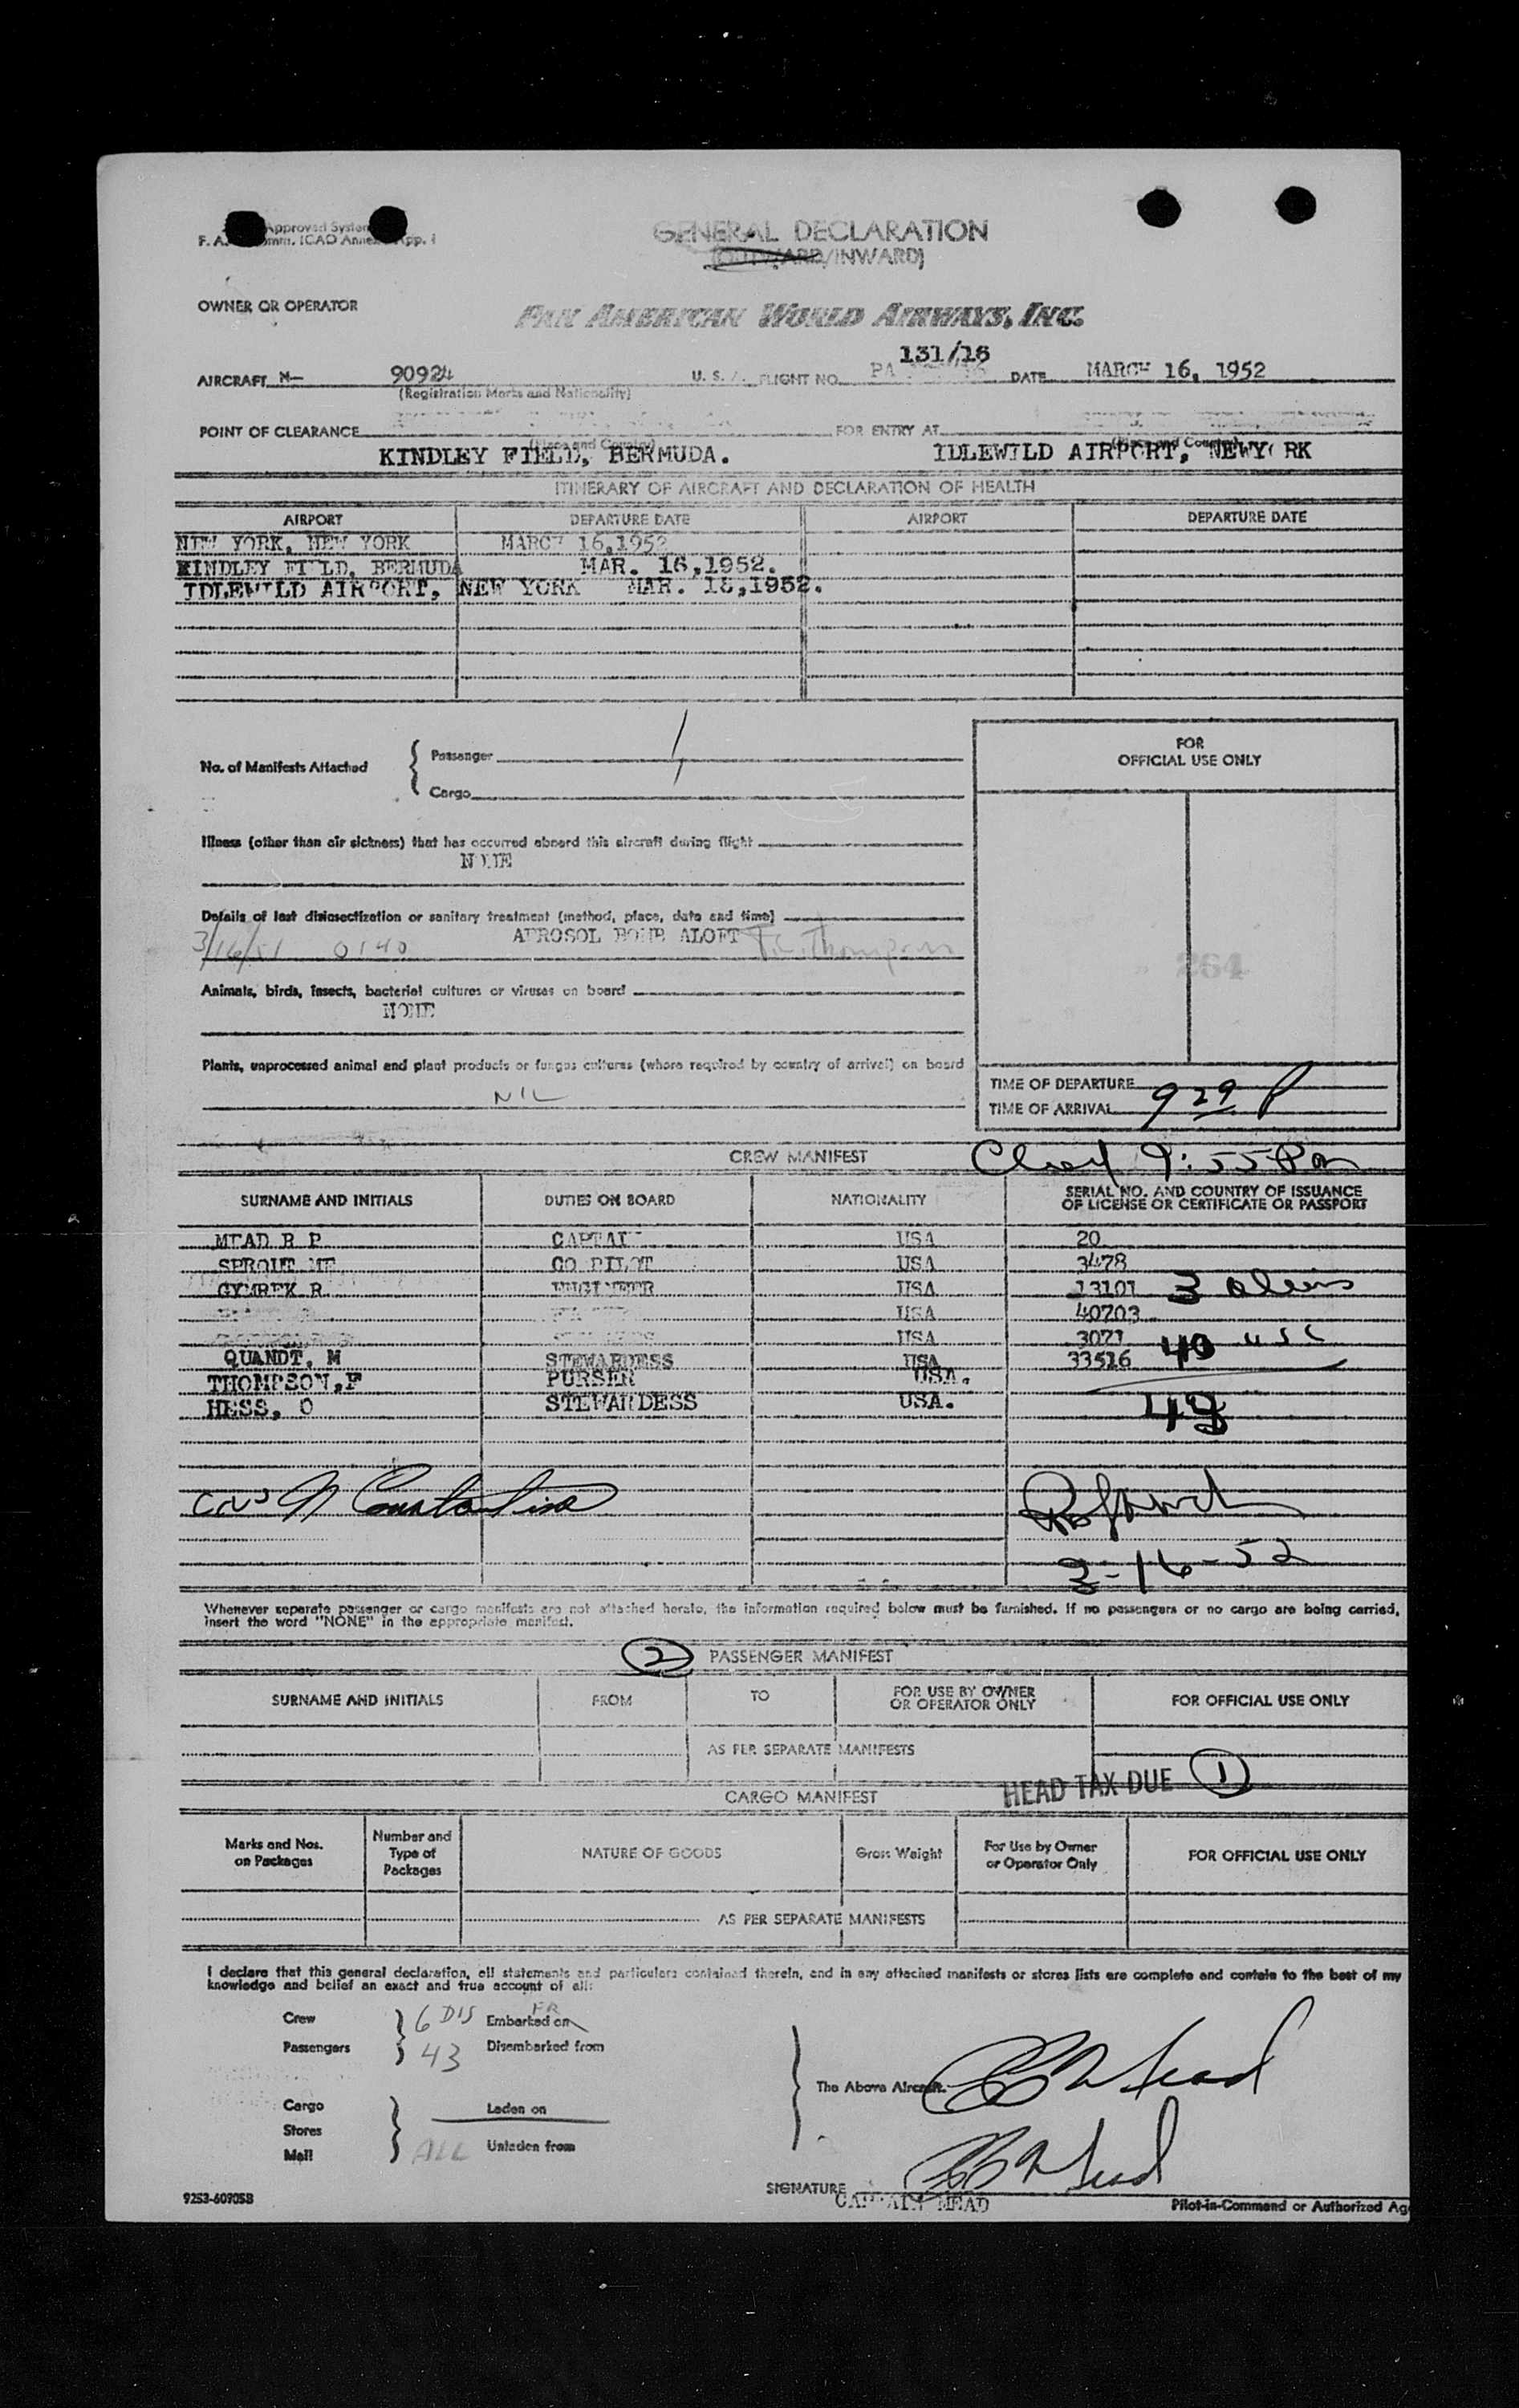 Approved System
F. A. Comm. ICAO Annex App. 1
GENERAL DECLARATION
(OUTWARD/INWARD)
OWNER OR OPERATOR
PAN AMERICAN WORLD AIRWAYS, INC.
131/16
AIRCRAFT N- 90924 U. S. A. FLIGHT NO. PA DATE MARCH 16, 1952
(Registration Marks and Nationality)
POINT OF CLEARANCE FOR ENTRY AT
(Place and Country) (Place and Country)
KINDLEY FIELD, BERMUDA. IDLEWILD AIRPORT, NEWYORK
ITINERARY OF AIRCRAFT AND DECLARATION OF HEALTH
AIRPORT DEPARTURE DATE AIRPORT DEPARTURE DATE
NEW YORK, NEW YORK MARCH 16,1952
KINDLEY FIELD, BERMUDA MAR. 16,1952.
IDLEWILD AIRPORT, NEW YORK MAR. 16,1952.
No. of Manifests Attached
Passenger 1
Cargo
FOR
OFFICIAL USE ONLY
Illness (other than air sickness) that has occurred aboard this aircraft during flight
NONE
Details of last disinsectization or sanitary treatment (method, place, date and time)
3/16/51 0140 AEROSOL BOMB ALOFT Thompson
264
Animals, birds, insects, bacterial cultures or viruses on board
NONE
Plants, unprocessed animal and plant products or fungus cultures (where required by country of arrival) on board
NIL
TIME OF DEPARTURE
TIME OF ARRIVAL 9 29 P
CREW MANIFEST 9:55 Pm
SURNAME AND INITIALS DUTIES ON BOARD NATIONALITY SERIAL NO. AND COUNTRY OF ISSUANCE
OF LICENSE OR CERTIFICATE OR PASSPORT
MEAD R P CAPTAIN USA 20
SPROUT MF CO PILOT USA 3478
GYMREK R ENGINEER USA 13101 3 aliens
USA 40703
USA 3071 40 usc
QUANDT, M STEWARDESS USA 33516
THOMPSON,F PURSER USA.
HESS, O STEWARDESS USA. 43
3-16-52
Whenever separate passenger or cargo manifests are not attached hereto, the information required below must be furnished. If no passengers or no cargo are being carried,
insert the word "NONE" in the appropriate manifest.
2 PASSENGER MANIFEST
SURNAME AND INITIALS FROM TO FOR USE BY OWNER
OR OPERATOR ONLY FOR OFFICIAL USE ONLY
AS PER SEPARATE MANIFESTS
CARGO MANIFEST HEAD TAX DUE 1
Marks and Nos.
on Packages Number and
Type of
Packages NATURE OF GOODS Gross Weight For Use by Owner
or Operator Only FOR OFFICIAL USE ONLY
AS PER SEPARATE MANIFESTS
I declare that this general declaration, all statements and particulars contained therein, and in any attached manifests or stores lists are complete and contain to the best of my
knowledge and belief an exact and true account of all:
Crew 6 DIS Embarked on FR
Passengers 43 Disembarked from
The Above Aircraft.
Cargo Laden on
Stores
Mail ALL Unladen from
SIGNATURE
CAPTAIN MEAD
9253-60705B Pilot-in-Command or Authorized Ag